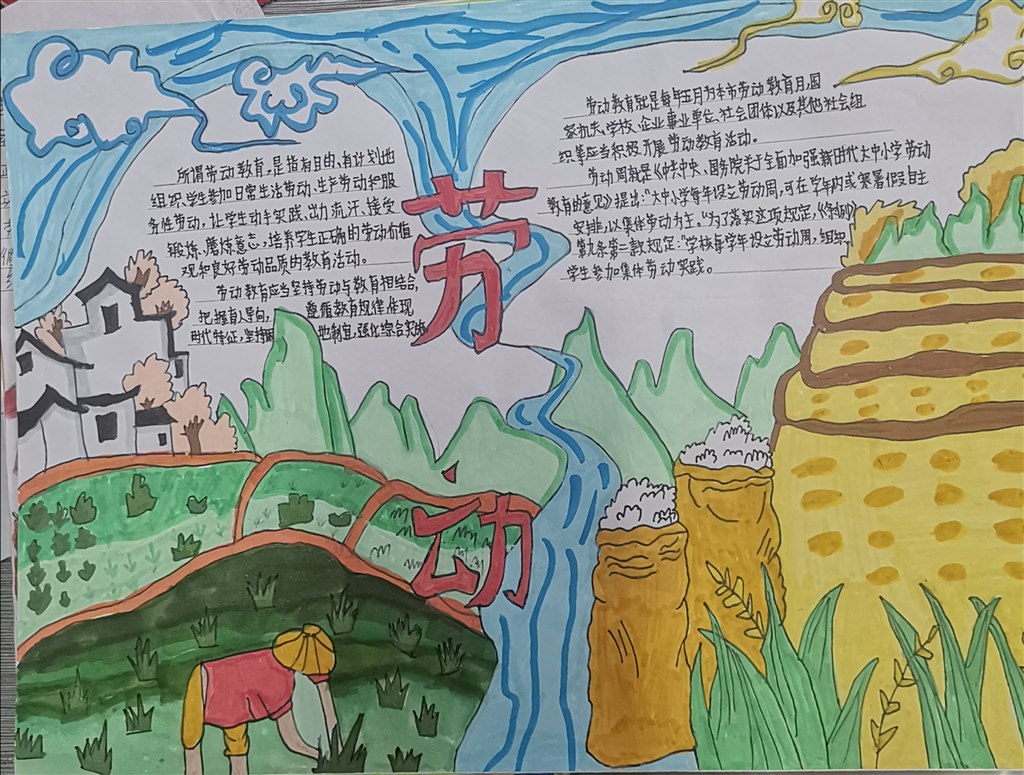 所谓劳动教育,是指有目的、有计划地
组织学生参加日常生活劳动、生产劳动和服
务性劳动,让学生动手实践、出力流汗、接受
锻炼、磨炼意志,培养学生正确的劳动价值
观和良好劳动品质的教育活动。
劳动教育应当坚持劳动与教育相结合,
把握育人导向,遵循教育规律,体现
时代特征,坚持因地制宜,强化综合实施
劳动教育就是每年五月为本市劳动教育月,国
家机关、学校、企业事业单位、社会团体以及其他社会组
织等应当积极开展劳动教育活动。
劳动周就是《中共中央、国务院关于全面加强新时代大中小学劳动
教育的意见》提出:"大中小学每年设立劳动周,可在学年内或寒暑假自主
安排,以集体劳动为主。"为了落实这项规定,《条例》
第九条第二款规定:"学校每学年设立劳动周,组织
学生参加集体劳动实践。
劳
动